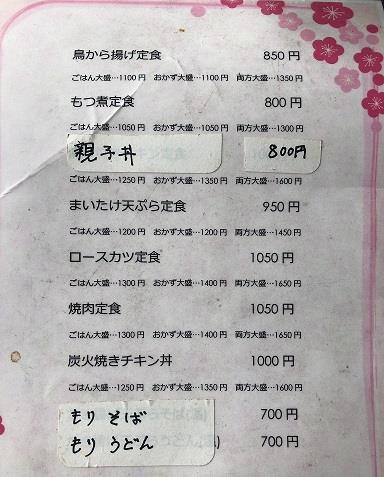 鳥から揚げ定食 850円
ごはん大盛…1100円 おかず大盛…1100円 両方大盛…1350円
もつ煮定食 800円
ごはん大盛…1050円 おかず大盛…1050円 両方大盛…1300円
親子丼 800円
ごはん大盛…1250円 おかず大盛…1350円 両方大盛…1600円
まいたけ天ぷら定食 950円
ごはん大盛…1200円 おかず大盛…1200円 両方大盛…1450円
ロースカツ定食 1050円
ごはん大盛…1300円 おかず大盛…1400円 両方大盛…1650円
焼肉定食 1050円
ごはん大盛…1300円 おかず大盛…1400円 両方大盛…1650円
炭火焼きチキン丼 1000円
ごはん大盛…1250円 おかず大盛…1350円 両方大盛…1600円
もりそば 700円
もりうどん 700円